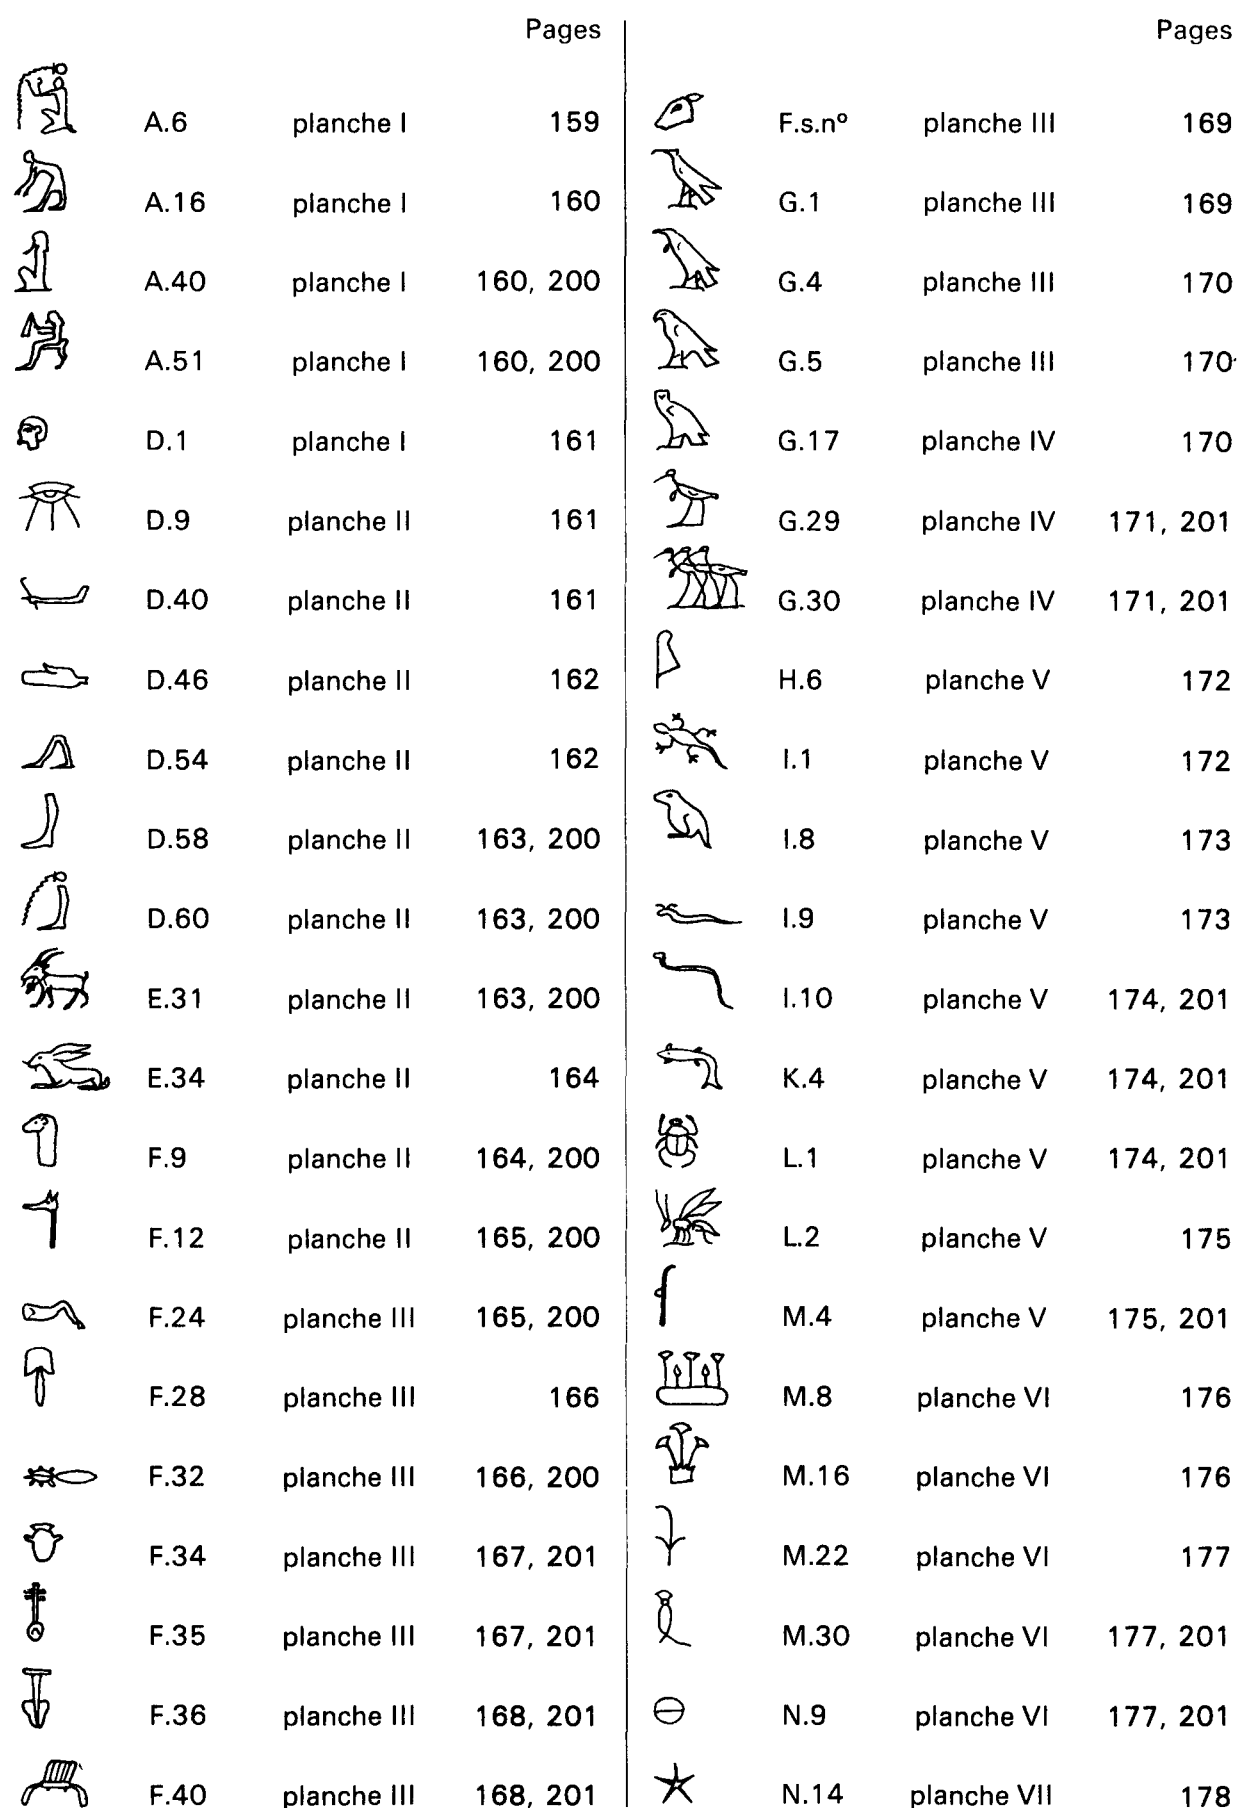 Pages
A.6 planche I 159
A.16 planche I 160
A.40 planche I 160, 200
A.51 planche I 160, 200
D.1 planche I 161
D.9 planche II 161
D.40 planche II 161
D.46 planche II 162
D.54 planche II 162
D.58 planche II 163, 200
D.60 planche II 163, 200
E.31 planche II 163, 200
E.34 planche II 164
F.9 planche II 164, 200
F.12 planche II 165, 200
F.24 planche III 165, 200
F.28 planche III 166
F.32 planche III 166, 200
F.34 planche III 167, 201
F.35 planche III 167, 201
F.36 planche III 168, 201
F.40 planche III 168, 201
Pages
F.s.nº planche III 169
G.1 planche III 169
G.4 planche III 170
G.5 planche III 170
G.17 planche IV 170
G.29 planche IV 171, 201
G.30 planche IV 171, 201
H.6 planche V 172
I.1 planche V 172
I.8 planche V 173
I.9 planche V 173
I.10 planche V 174, 201
K.4 planche V 174, 201
L.1 planche V 174, 201
L.2 planche V 175
M.4 planche V 175, 201
M.8 planche VI 176
M.16 planche VI 176
M.22 planche VI 177
M.30 planche VI 177, 201
N.9 planche VI 177, 201
N.14 planche VII 178